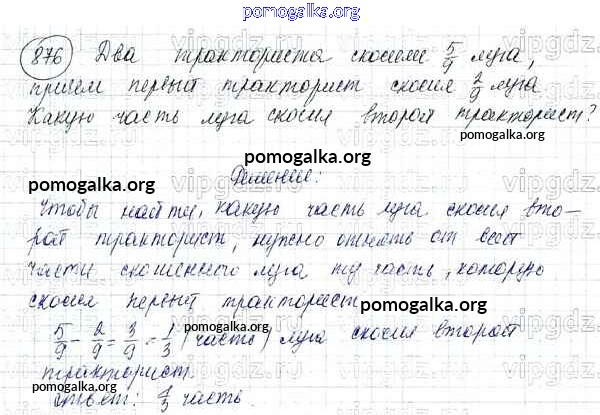 pomogalka.org
876 Два тракториста скосили 5/9 луга,
причем первый тракторист скосил 2/9 луга
Какую часть луга скосил второй тракторист?
pomogalka.org
pomogalka.org
pomogalka.org
Решение:
Чтобы найти, какую часть луга скосил вто-
рой тракторист, нужно отнять от всей
части скошенного луга ту часть, которую
скосил первый тракторист
pomogalka.org
5/9 - 2/9 = 3/9 = 1/3 (часть) луга скосил второй
pomogalka.org
тракторист.
pomogalka.org
Ответ: 1/3 часть.